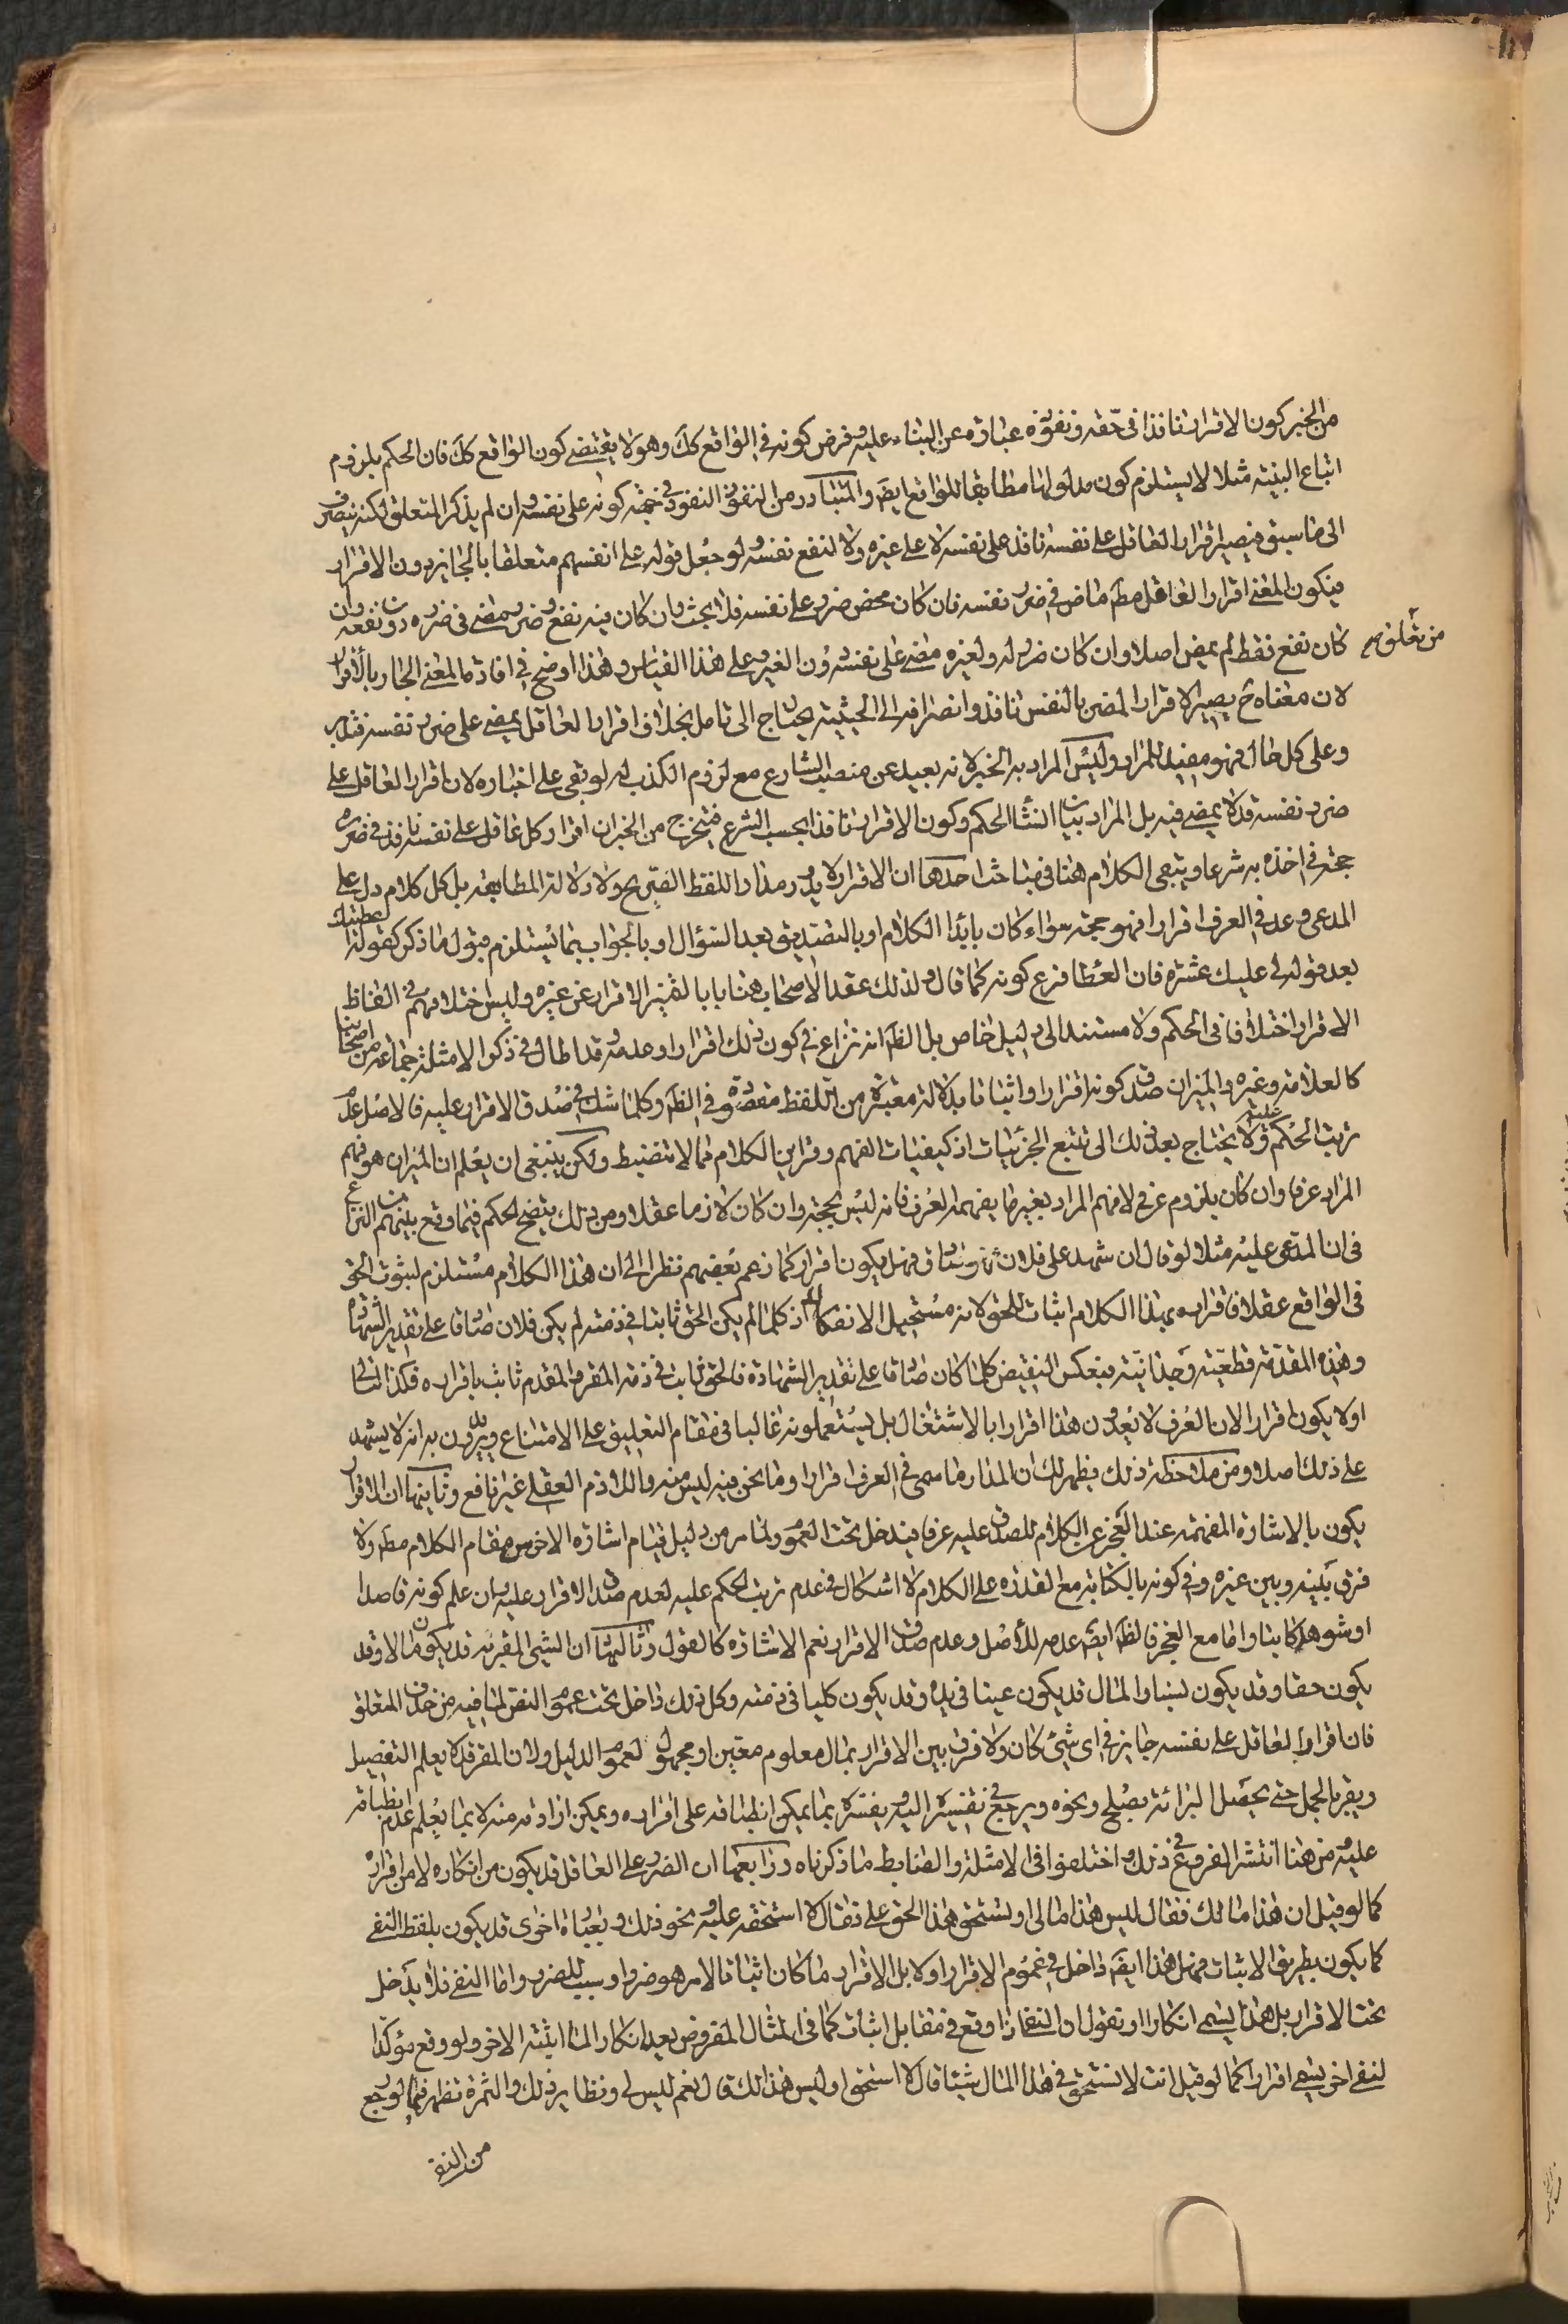 من الخبر كون الاقرار نافذا فى حقه ونفوذه عبارة عن البناء عليه وفرض كونه فى الواقع كك وهو لا يقتضى كون الواقع كك فان الحكم بلزوم
اتباع البينة مثلا لا يستلزم كون مدلولها مطابقا للواقع ايضا والمتبادر من النفوذ النفوذ فى جهة كونه على نفسه وان لم يذكر المتعلق لكنه ينصرف
الى ما سبق فيصير اقرار العاقل على نفسه نافذ على نفسه لا على غيره ولا لنفع نفسه ولو جعل قوله على انفسهم متعلقا بالجايز دون الاقرار
فيكون المعنى اقرار العاقل مطم ماض فى ضرر نفسه فان كان محض ضرر على نفسه فلا بحث وان كان فيه نفع وضرر مضى فى ضرره دون نفعه وان
كان نفع فقط لم يمض اصلا وان كان ضرر له ولغيره مضى على نفسه دون الغير وعلى هذا القياس وهذا اوضح فى افادة المعنى الجار بالاقرار
من تعلقه
لان معناه ح يصير الاقرار المضر بالنفس نافذ وانصرافه الى الحيثية يحتاج الى تامل بخلاف اقرار العاقل يمضى على ضرر نفسه فتدبر
وعلى كل حال فهو مفيد للمراد وليس المراد به الخبر لانه بعيد عن منصب الشارع مع لزوم الكذب له لو بقى على اخباره لان اقرار العاقل على
ضرر نفسه قد لا يمضى فيه بل المراد بيان انشاء الحكم وكون الاقرار نافذا بحسب الشرع فتخرج من الخبر ان اقرار كل عاقل على نفسه نافذ فى ضرره
حجة فى اخذه به شرعا ويبقى الكلام هنا فى مباحث احدها ان الاقرار لا يدور مدار اللفظ الصريح ولا دلالة المطابقة بل كل كلام دل على
المدعى وعد فى العرف اقرارا فهو حجة سواء كان بابتداء الكلام او بالتصديق بعد السؤال او بالجواب بما يستلزم قبول ما ذكر كقوله اعطيتك
بعد قوله لى عليك عشرة فان العطا فرع كونه كما قال ولذلك عقد الاصحاب هنا بابا لتميز الاقرار عن غيره وليس اختلافهم فى الفاظ
الاقرار اختلافا فى الحكم ولا مستندا الى دليل خاص بل الظم انه نزاع فى كون ذلك اقرارا وعدمه وقد اطال فى ذكر الامثلة جماعة من اصحابنا
كالعلامة وغيره والميزان صدق كونه اقرارا واثباتا بدلالة معتبرة من اللفظ مقصودة فى الظم وكلما شك فى صدق الاقرار عليه فالاصل عدم
ترتب الحكم عليه ولا يحتاج بعد ذلك الى تتبع الجزئيات اذ كيفيات الفهم وقراين الكلام مما لا تنضبط ولكن ينبغى ان يعلم ان الميزان هو فهم
المراد عرفا وان كان بلزوم عرفى لا فهم المراد بغير ما يفهمه العرف فانه ليس بحجة وان كان لازما عقلا ومن ذلك يتضح الحكم فيما وقع بينهم من النزاع
فى ان المدعى عليه مثلا لو قال ان شهد على فلان فهو صادق فهل يكون اقرارا كما زعم بعضهم نظرا الى ان هذا الكلام مستلزم لثبوت الحق
فى الواقع عقلا فاقراره بهذا الكلام اثبات للحق لانه مستحيل الانفكاك اذ كلما لم يكن الحق ثابتا فى ذمته لم يكن فلان صادقا على تقدير الشهادة
وهذه المقدمة قطعية وجدانية فبعكس النقيض كلما كان صادقا على تقدير الشهادة فالحق ثابت فى ذمة المقر والمقدم ثابت باقراره فكذا التالى
او لا يكون اقرارا لان العرف لا يعدون هذا اقرارا بالاشتغال بل يستعملونه غالبا فى مقام التعليق على الامتناع ويريدون به انه لا يشهد
على ذلك اصلا ومن ملاحظة ذلك يظهر لك ان المدار ما سمى فى العرف اقرارا وما نحن فيه ليس منه واللازم العقلى غير نافع وثانيها ان الاقرار
يكون بالاشارة المفهمة عند العجز عن الكلام للصدق عليه عرفا فيدخل تحت العموم ولما مر من دليل قيام اشارة الاخرس مقام الكلام مطم ولا
فرق بينه وبين غيره وفى كونه بالكتابة مع القدرة على الكلام لا اشكال فى عدم ترتب الحكم عليه لعدم صدق الاقرار عليه وان علم كونه قاصدا
او شوهد كاتبا واما مع العجز فالظم ايضم عدمه للاصل وعدم صدق الاقرار نعم الاشارة كالقول وثالثها ان الشيئ المقر به قد يكون مالا وقد
يكون حقا وقد يكون نسبا والمال قد يكون عينا فى يده وقد يكون كليا فى ذمته وكل ذلك داخل تحت عموم النص لما فيه من حذف المتعلق
فان اقرار العاقل على نفسه جايز فى اى شيئ كان ولا فرق بين الاقرار بمال معلوم معين او مجهول لعموم الدليل ولان المقر قد لا يعلم التفصيل
ويقر بالمجمل حتى يحصل البرائة بصلح ونحوه ويرجع فى تفسيره اليه ويفسره بما يمكن انطباقه على اقراره ويمكن ارادته منه لا بما يعلم عدم انطباقه
عليه ومن هنا انتشر الفروع فى ذلك واختلفوا فى الامثلة والضابط ما ذكرناه ورابعها ان الضرر على العاقل قد يكون من انكاره لا من اقراره
كما لو قيل ان هذا مالك فقال ليس هذا مالى او تستحق هذا الحق على فقال لا استحقه عليه ونحو ذلك وبعبارة اخرى قد يكون بلفظ النفى
كما يكون بطريق الاثبات فهل هذا ايضم داخل فى عموم الاقرار اولا بل الاقرار ما كان اثباتا لامر هو ضرر او سبب للضرر واما النفى فلا يدخل
تحت الاقرار بل هذا يسمى انكارا او نقول ان النفى اذا وقع فى مقابل اثبات كما فى المثال المفروض يعد انكارا لما اثبته الاخر ولو وقع مؤكدا
لنفى اخر يسمى اقرارا كما لو قيل انت لا تستحق فى هذا المال شيئا قال لا استحق او ليس هذا لك قال نعم ليس لى ونظاير ذلك والثمرة تظهر فيما لو رجع
من النفى